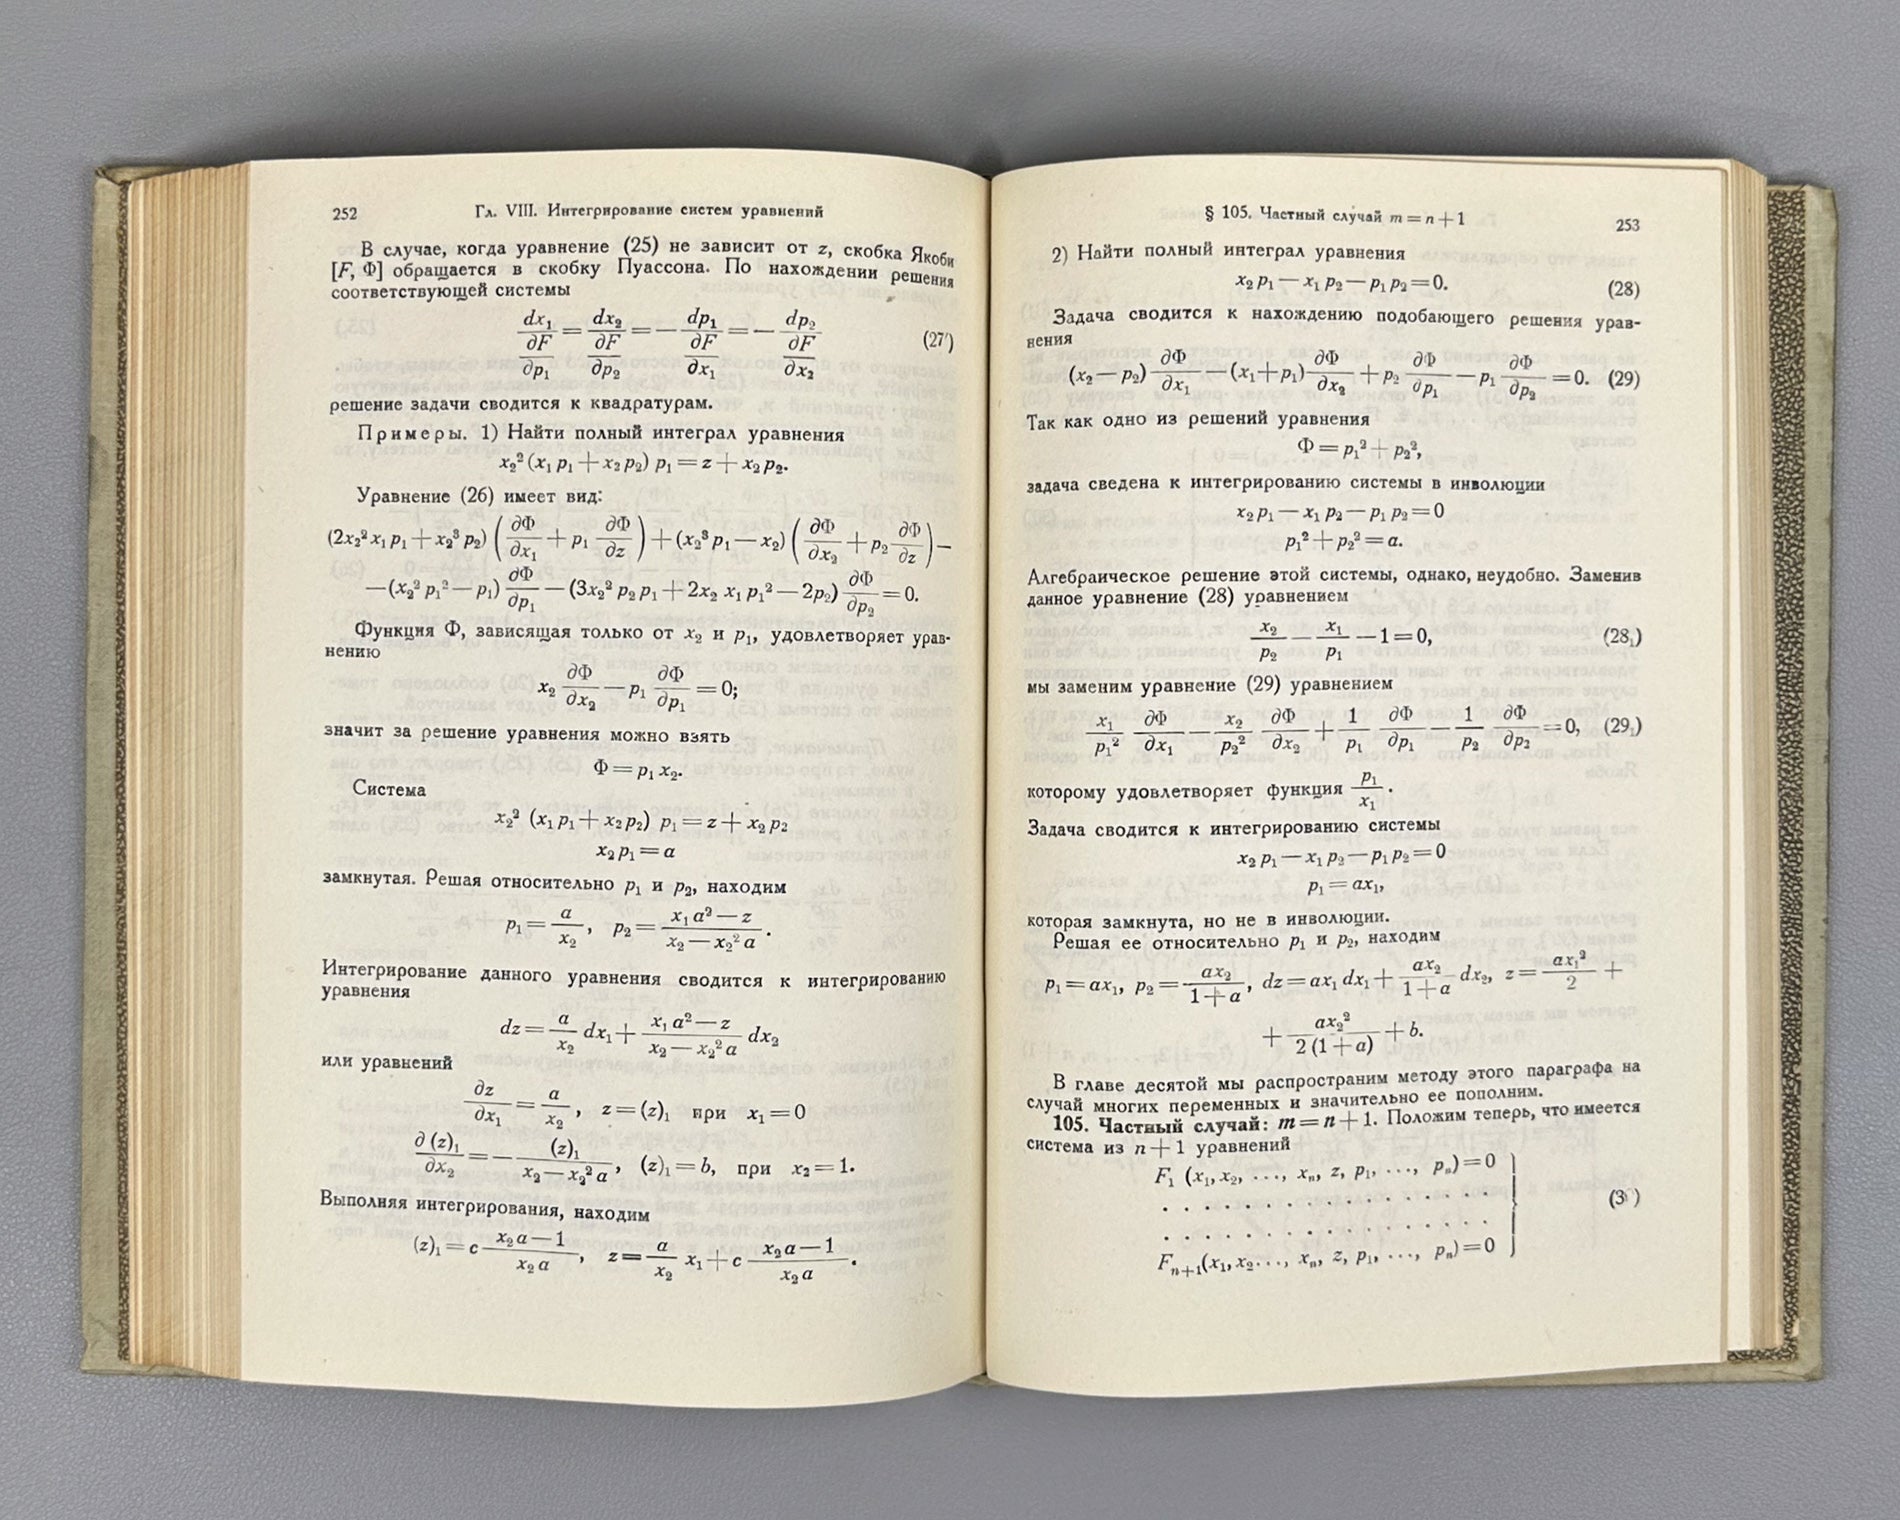 252
Гл. VIII. Интегрирование систем уравнений
В случае, когда уравнение (25) не зависит от z, скобка Якоби
[F, Φ] обращается в скобку Пуассона. По нахождении решения
соответствующей системы
dx₁/(∂F/∂p₁) = dx₂/(∂F/∂p₂) = — dp₁/(∂F/∂x₁) = — dp₂/(∂F/∂x₂) (27')
решение задачи сводится к квадратурам.
Примеры. 1) Найти полный интеграл уравнения
x₂² (x₁ p₁ + x₂ p₂) p₁ = z + x₂ p₂.
Уравнение (26) имеет вид:
(2x₂² x₁ p₁ + x₂³ p₂) (∂Φ/∂x₁ + p₁ ∂Φ/∂z) + (x₂³ p₁ — x₂) (∂Φ/∂x₂ + p₂ ∂Φ/∂z) —
— (x₂² p₁² — p₁) ∂Φ/∂p₁ — (3x₂² p₂ p₁ + 2x₂ x₁ p₁² — 2p₂) ∂Φ/∂p₂ = 0.
Функция Φ, зависящая только от x₂ и p₁, удовлетворяет урав-
нению
x₂ ∂Φ/∂x₂ — p₁ ∂Φ/∂p₁ = 0;
значит за решение уравнения можно взять
Φ = p₁ x₂.
Система
x₂² (x₁ p₁ + x₂ p₂) p₁ = z + x₂ p₂
x₂ p₁ = a
замкнутая. Решая относительно p₁ и p₂, находим
p₁ = a/x₂, p₂ = (x₁ a² — z)/(x₂ — x₂² a).
Интегрирование данного уравнения сводится к интегрированию
уравнения
dz = a/x₂ dx₁ + (x₁ a² — z)/(x₂ — x₂² a) dx₂
или уравнений
∂z/∂x₁ = a/x₂, z = (z)₁ при x₁ = 0
∂(z)₁/∂x₂ = — (z)₁/(x₂ — x₂² a), (z)₁ = b, при x₂ = 1.
Выполняя интегрирования, находим
(z)₁ = c (x₂ a — 1)/(x₂ a), z = a/x₂ x₁ + c (x₂ a — 1)/(x₂ a).
§ 105. Частный случай m = n + 1
253
2) Найти полный интеграл уравнения
x₂ p₁ — x₁ p₂ — p₁ p₂ = 0. (28)
Задача сводится к нахождению подобающего решения урав-
нения
(x₂ — p₂) ∂Φ/∂x₁ — (x₁ + p₁) ∂Φ/∂x₂ + p₂ ∂Φ/∂p₁ — p₁ ∂Φ/∂p₂ = 0. (29)
Так как одно из решений уравнения
Φ = p₁² + p₂²,
задача сведена к интегрированию системы в инволюции
x₂ p₁ — x₁ p₂ — p₁ p₂ = 0
p₁² + p₂² = a.
Алгебраическое решение этой системы, однако, неудобно. Заменив
данное уравнение (28) уравнением
x₂/p₂ — x₁/p₁ — 1 = 0, (28₁)
мы заменим уравнение (29) уравнением
x₁/p₁² ∂Φ/∂x₁ — x₂/p₂² ∂Φ/∂x₂ + 1/p₁ ∂Φ/∂p₁ — 1/p₂ ∂Φ/∂p₂ = 0, (29₁)
которому удовлетворяет функция p₁/x₁.
Задача сводится к интегрированию системы
x₂ p₁ — x₁ p₂ — p₁ p₂ = 0
p₁ = ax₁,
которая замкнута, но не в инволюции.
Решая ее относительно p₁ и p₂, находим
p₁ = ax₁, p₂ = ax₂/(1 + a), dz = ax₁ dx₁ + ax₂/(1 + a) dx₂, z = ax₁²/2 +
+ ax₂²/(2 (1 + a)) + b.
В главе десятой мы распространим методу этого параграфа на
случай многих переменных и значительно ее пополним.
105. Частный случай: m = n + 1. Положим теперь, что имеется
система из n + 1 уравнений
F₁ (x₁, x₂, ..., xₙ, z, p₁, ..., pₙ) = 0
. . . . . . . . . . . . . . . .
. . . . . . . . . . . . . . . . (3 )
Fₙ₊₁(x₁, x₂ ..., xₙ, z, p₁, ..., pₙ) = 0